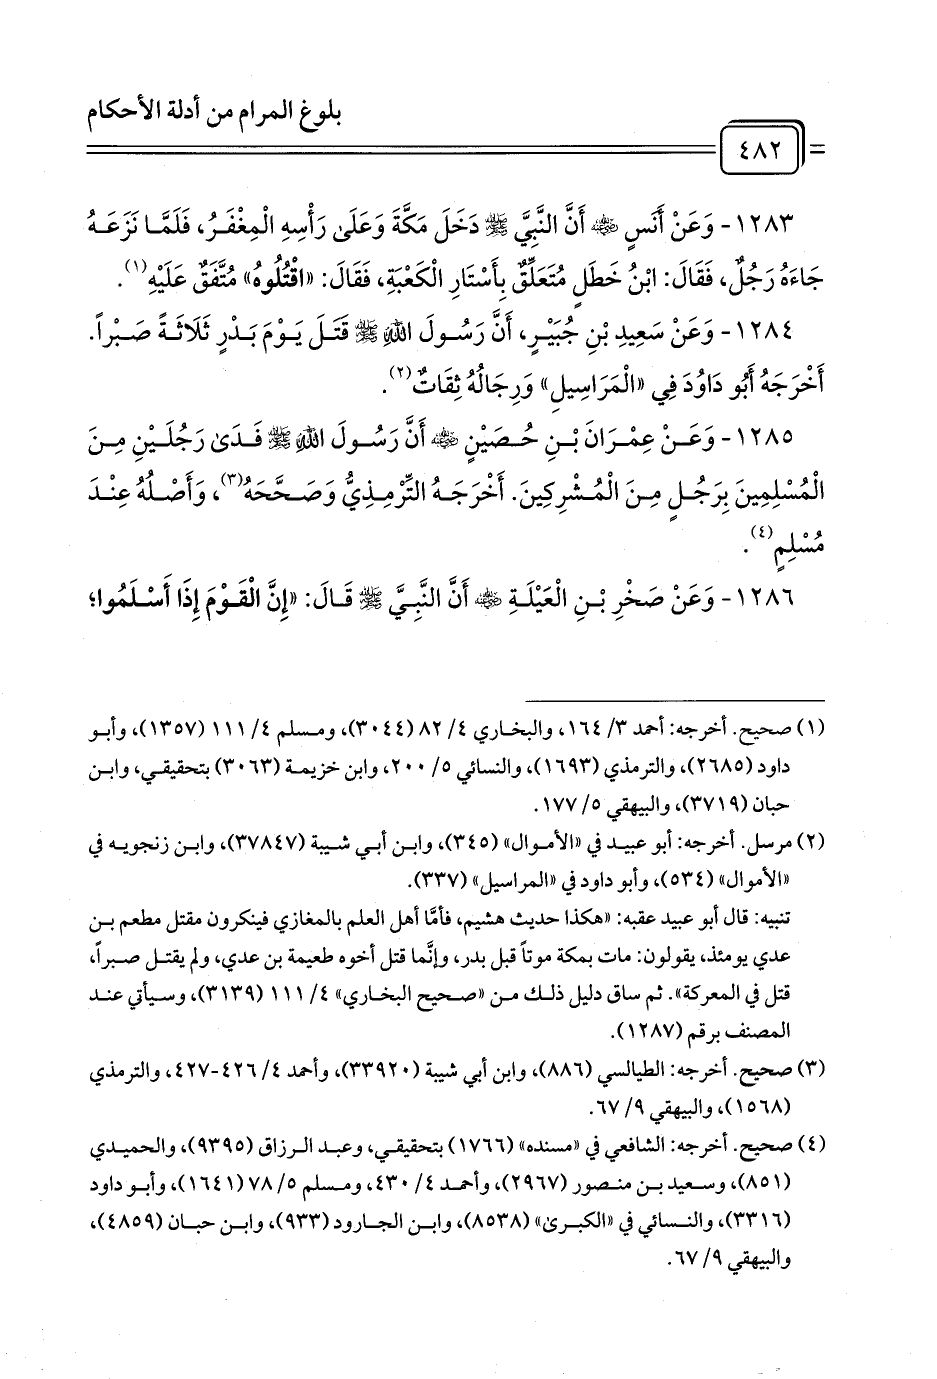 بلوغ المرام من أدلة الأحكام
٤٨٢
١٢٨٣- وَعَنْ أَنَسٍ ﵁ أَنَّ النَّبِيَّ ﷺ دَخَلَ مَكَّةَ وَعَلَىٰ رَأْسِهِ الْمِغْفَرُ، فَلَمَّا نَزَعَهُ
جَاءَهُ رَجُلٌ، فَقَالَ: ابْنُ خَطَلٍ مُتَعَلِّقٌ بِأَسْتَارِ الْكَعْبَةِ، فَقَالَ: «اقْتُلُوهُ» مُتَّفَقٌ عَلَيْهِ(١).
١٢٨٤- وَعَنْ سَعِيدِ بْنِ جُبَيْرٍ، أَنَّ رَسُولَ اللهِ ﷺ قَتَلَ يَوْمَ بَدْرٍ ثَلَاثَةً صَبْراً.
أَخْرَجَهُ أَبُو دَاوُدَ فِي «الْمَرَاسِيلِ» وَرِجَالُهُ ثِقَاتٌ(٢).
١٢٨٥- وَعَنْ عِمْرَانَ بْنِ حُصَيْنٍ ﵁ أَنَّ رَسُولَ اللهِ ﷺ فَدَىٰ رَجُلَيْنِ مِنَ
الْمُسْلِمِينَ بِرَجُلٍ مِنَ الْمُشْرِكِينَ. أَخْرَجَهُ التِّرْمِذِيُّ وَصَحَّحَهُ(٣)، وَأَصْلُهُ عِنْدَ
مُسْلِمٍ(٤).
١٢٨٦- وَعَنْ صَخْرِ بْنِ الْعَيْلَةِ ﵁ أَنَّ النَّبِيَّ ﷺ قَالَ: «إِنَّ الْقَوْمَ إِذَا أَسْلَمُوا؛
(١) صحيح. أخرجه: أحمد ٣/ ١٦٤، والبخاري ٤/ ٨٢ (٣٠٤٤)، ومسلم ٤/ ١١١ (١٣٥٧)، وأبو
داود (٢٦٨٥)، والترمذي (١٦٩٣)، والنسائي ٥/ ٢٠٠، وابن خزيمة (٣٠٦٣) بتحقيقي، وابن
حبان (٣٧١٩)، والبيهقي ٥/ ١٧٧.
(٢) مرسل. أخرجه: أبو عبيد في «الأموال» (٣٤٥)، وابن أبي شيبة (٣٧٨٤٧)، وابن زنجويه في
«الأموال» (٥٣٤)، وأبو داود في «المراسيل» (٣٣٧).
تنبيه: قال أبو عبيد عقبه: «هكذا حديث هشيم، فأمَّا أهل العلم بالمغازي فينكرون مقتل مطعم بن
عدي يومئذ، يقولون: مات بمكة موتاً قبل بدر، وإنَّما قتل أخوه طعيمة بن عدي، ولم يقتل صبراً،
قتل في المعركة». ثم ساق دليل ذلك من «صحيح البخاري» ٤/ ١١١ (٣١٣٩)، وسيأتي عند
المصنف برقم (١٢٨٧).
(٣) صحيح. أخرجه: الطيالسي (٨٨٦)، وابن أبي شيبة (٣٣٩٢٠)، وأحمد ٤/ ٤٢٦-٤٢٧، والترمذي
(١٥٦٨)، والبيهقي ٩/ ٦٧.
(٤) صحيح. أخرجه: الشافعي في «مسنده» (١٧٦٦) بتحقيقي، وعبد الرزاق (٩٣٩٥)، والحميدي
(٨٥١)، وسعيد بن منصور (٢٩٦٧)، وأحمد ٤/ ٤٣٠، ومسلم ٥/ ٧٨ (١٦٤١)، وأبو داود
(٣٣١٦)، والنسائي في «الكبرىٰ» (٨٥٣٨)، وابن الجارود (٩٣٣)، وابن حبان (٤٨٥٩)،
والبيهقي ٩/ ٦٧.